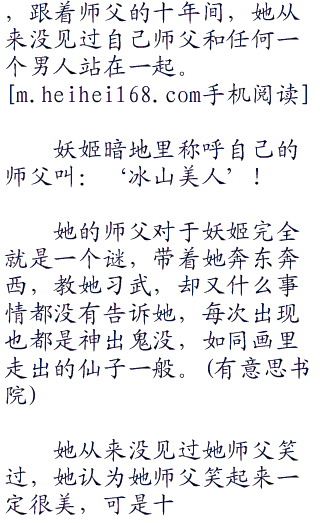 ，跟着师父的十年间，她从
来没见过自己师父和任何一
个男人站在一起。
[m.heihei168.com手机阅读]
妖姬暗地里称呼自己的
师父叫：‘冰山美人’！
她的师父对于妖姬完全
就是一个谜，带着她奔东奔
西，教她习武，却又什么事
情都没有告诉她，每次出现
也都是神出鬼没，如同画里
走出的仙子一般。(有意思书
院)
她从来没见过她师父笑
过，她认为她师父笑起来一
定很美，可是十